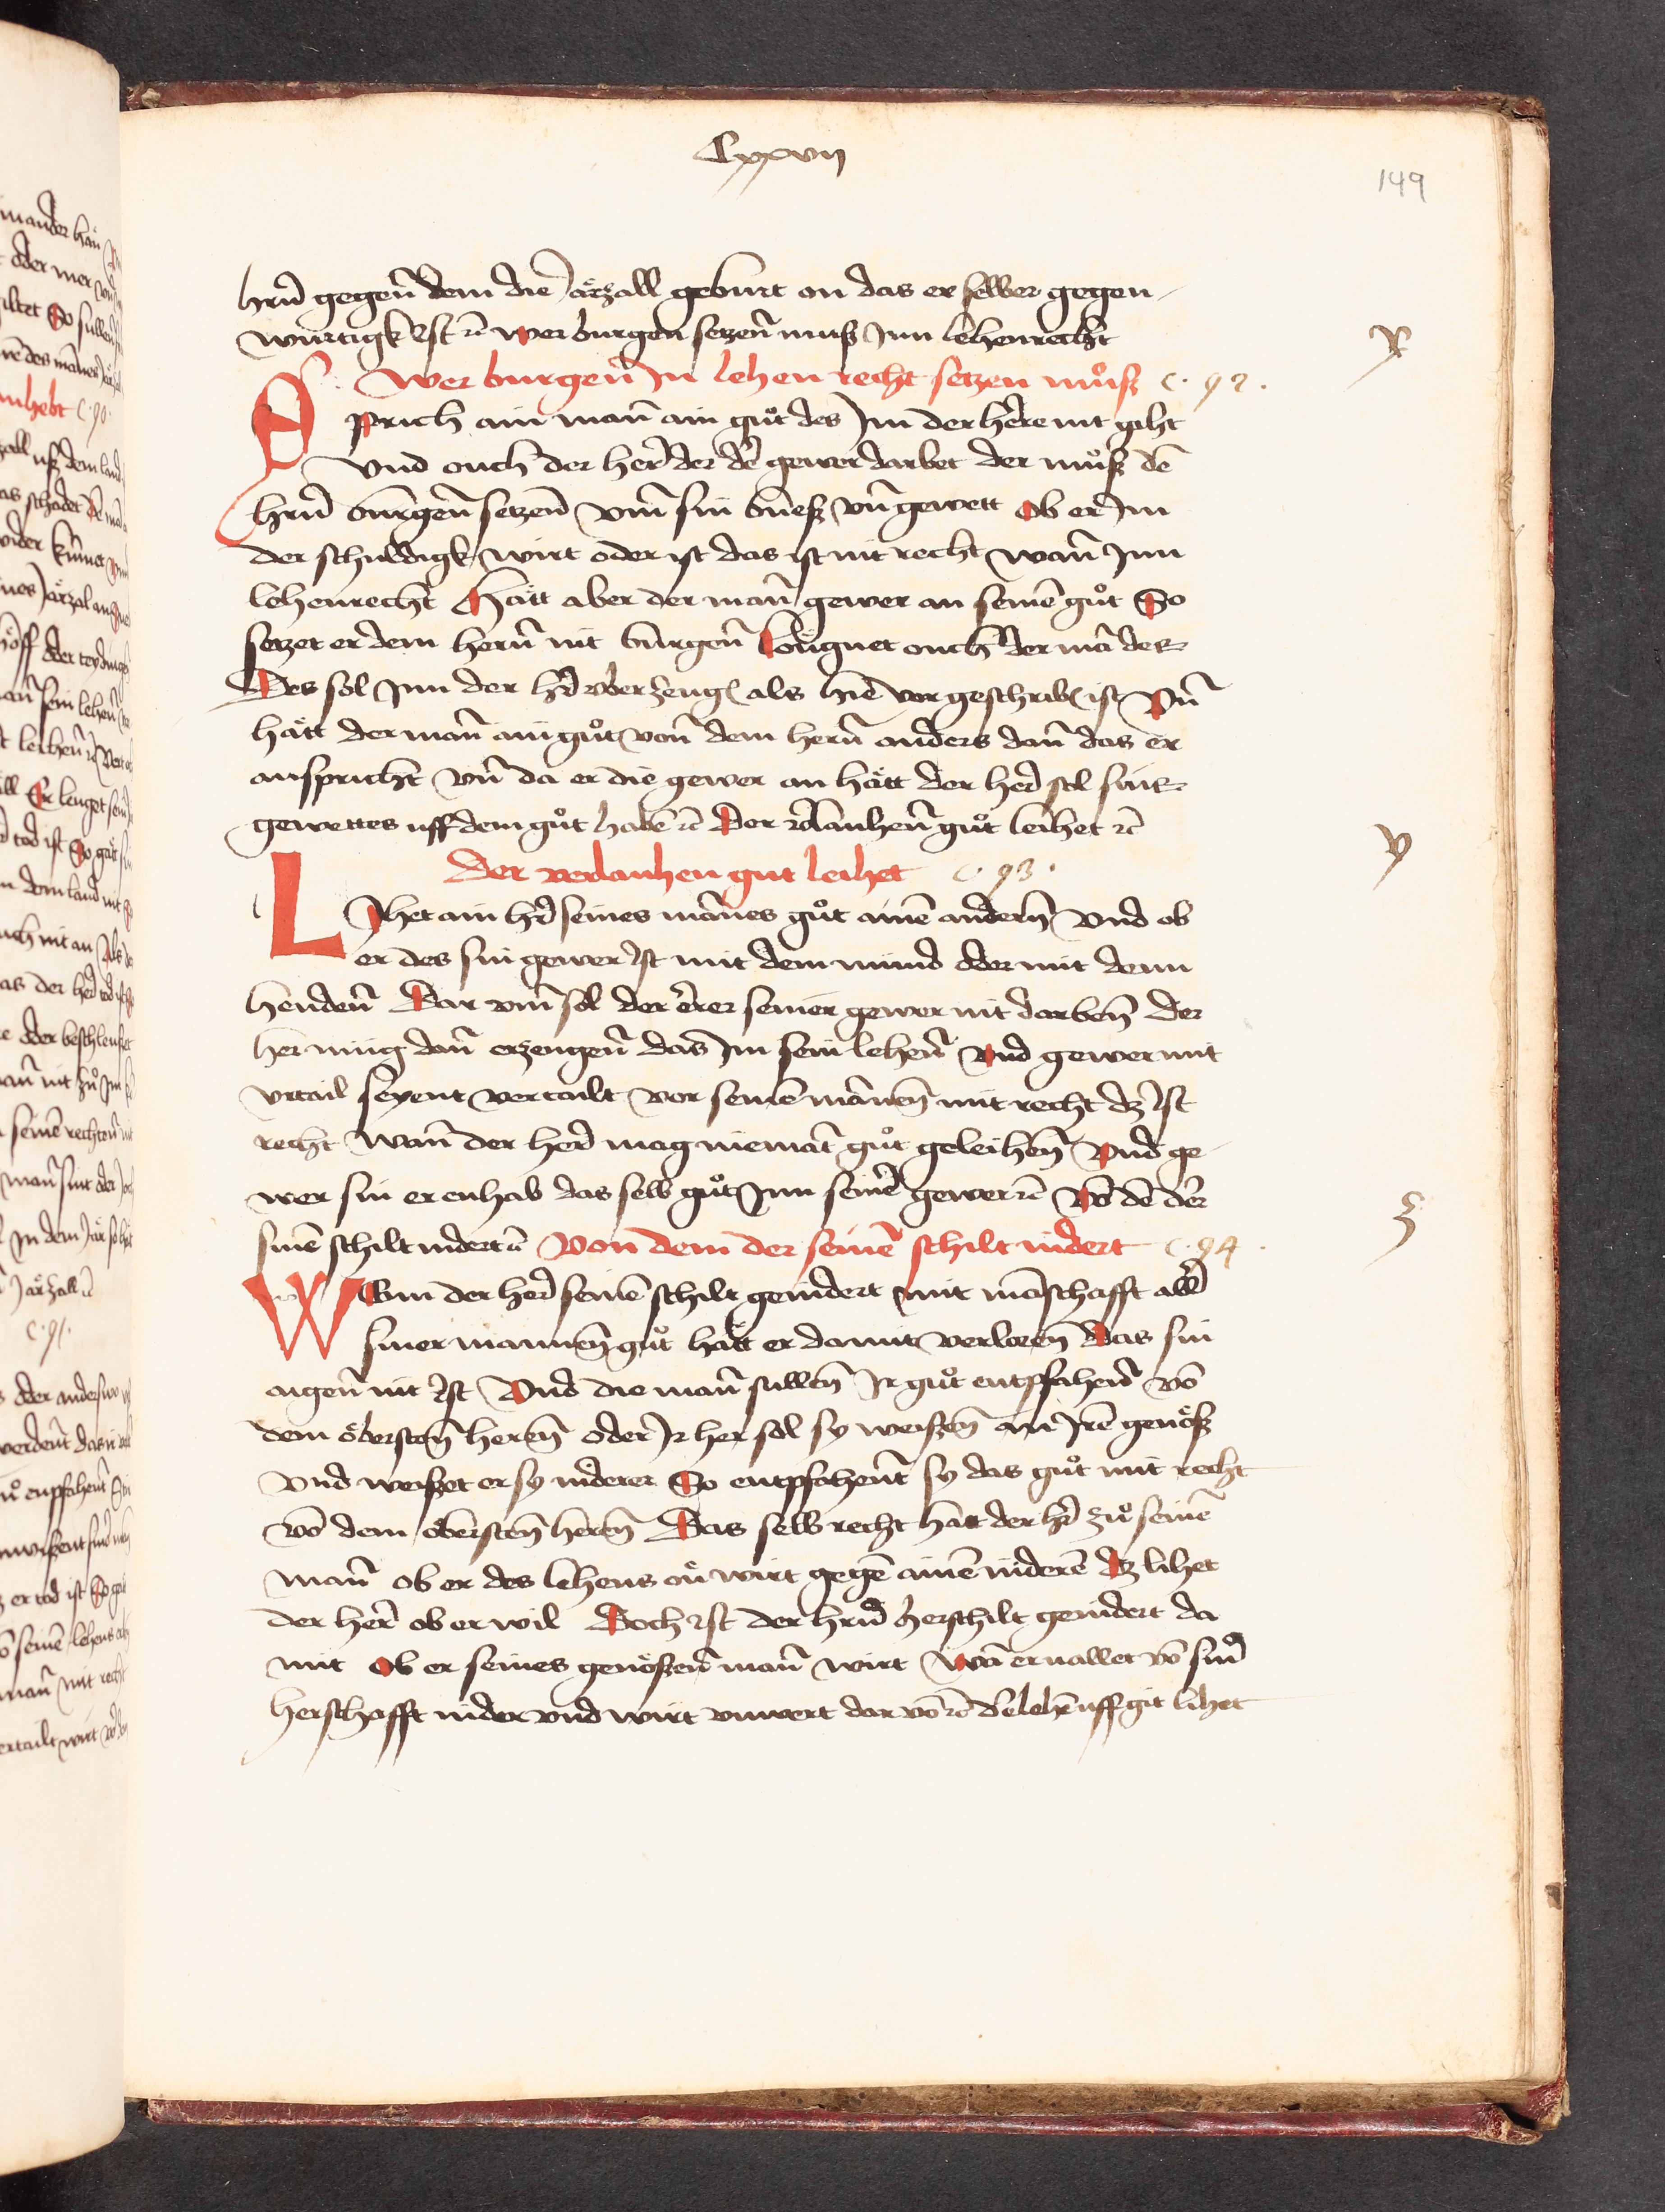 Cxxvij
149
hrn̄ gegen̄ dem die Jarzall geburt on das er selber gegen
würtigk ist ꝛc wer burgen setzen̄ muß Jnn lehenrecht
x
Wer burgen̄ In lehen recht setzen muͦß c. 92.
Sprich ain man̄ ain guͦt des Jm der herre nit giht
Vnd ouch der her der dē gewer darbet der muͦß dē
hrn̄ bürgen̄ setzen̄ vm̄ sin bueß vn̄ gewett Ob er Jm
der schuldigk wirt oder ist das ist nit recht wan̄ Jnn
lehenrecht Hätt aber der man̄ gewer an seinē guͦt So
setzet er dem hern̄ nit bürgen̄ lougnet ouch der mā des
Des sol Jnn der hr̄ vberzeug als hie vor geschrib ist Vn̄
hätt der man̄ ain guͦt von̄ dem hern̄ anders dan̄ das er
anspricht vn̄ da er die gewer an hätt der her sol sins
gewettes uff dem guͦt habē ꝛc Der v̄lauhen̄ guͦt leihet ꝛc
y
Der verlauhen gut leihet c. 93.
LJhet ain hr̄ seines mānes guͦt ainē andern̄ Vnd ob
er des sin gewer ist mit dem mund oder mit denn
henden̄ Dar vm̄ sol der erer seiner gewer nit darben̄ der
her müg dan̄ erzeugen̄ das Jm sein lehen̄ vnd gewer mit
vrtail seyent vertailt vor seinē mānen̄ mit recht dz ist
recht Wan̄ der her mag niemāt guͦt geleihen̄ Vnd ge
wer sin er enhab das selb guͦt Jnn seinē gewer ꝛc Vō dē der
sinē schilt nidert ꝛc Von dem der seinē schilt nidert c. 94.
z
WEnn der her seinē schilt genidert mit māschafft aller
siner mannen̄ guͦt hätt er damit verloren̄ Das sin
aigen̄ nit ist Vnd die man̄ sullen̄ Jr guͦt entpfahen̄ vō
dem oͤbersten̄ heren̄ oder Jr her sol sy weißen̄ an Jrē genöß
Vnd weißet er sy niderer So entpfahent sy das guͦt mit recht
vō dem obersten̄ heren̄ Das selb recht hätt der hr̄ zuͦ seinē
man̄ ob er des lehens on̄ wirt gegē ainē niderē dz lihet
der her ob er wil Doch ist der hrn̄ herschilt genidert da
mit Ob er seines genößen̄ man̄ wirt Wā er uallet vō sin̄
herschafft nider vnd wirt vnwert dar vō ꝛc dē lehē uff git lihet